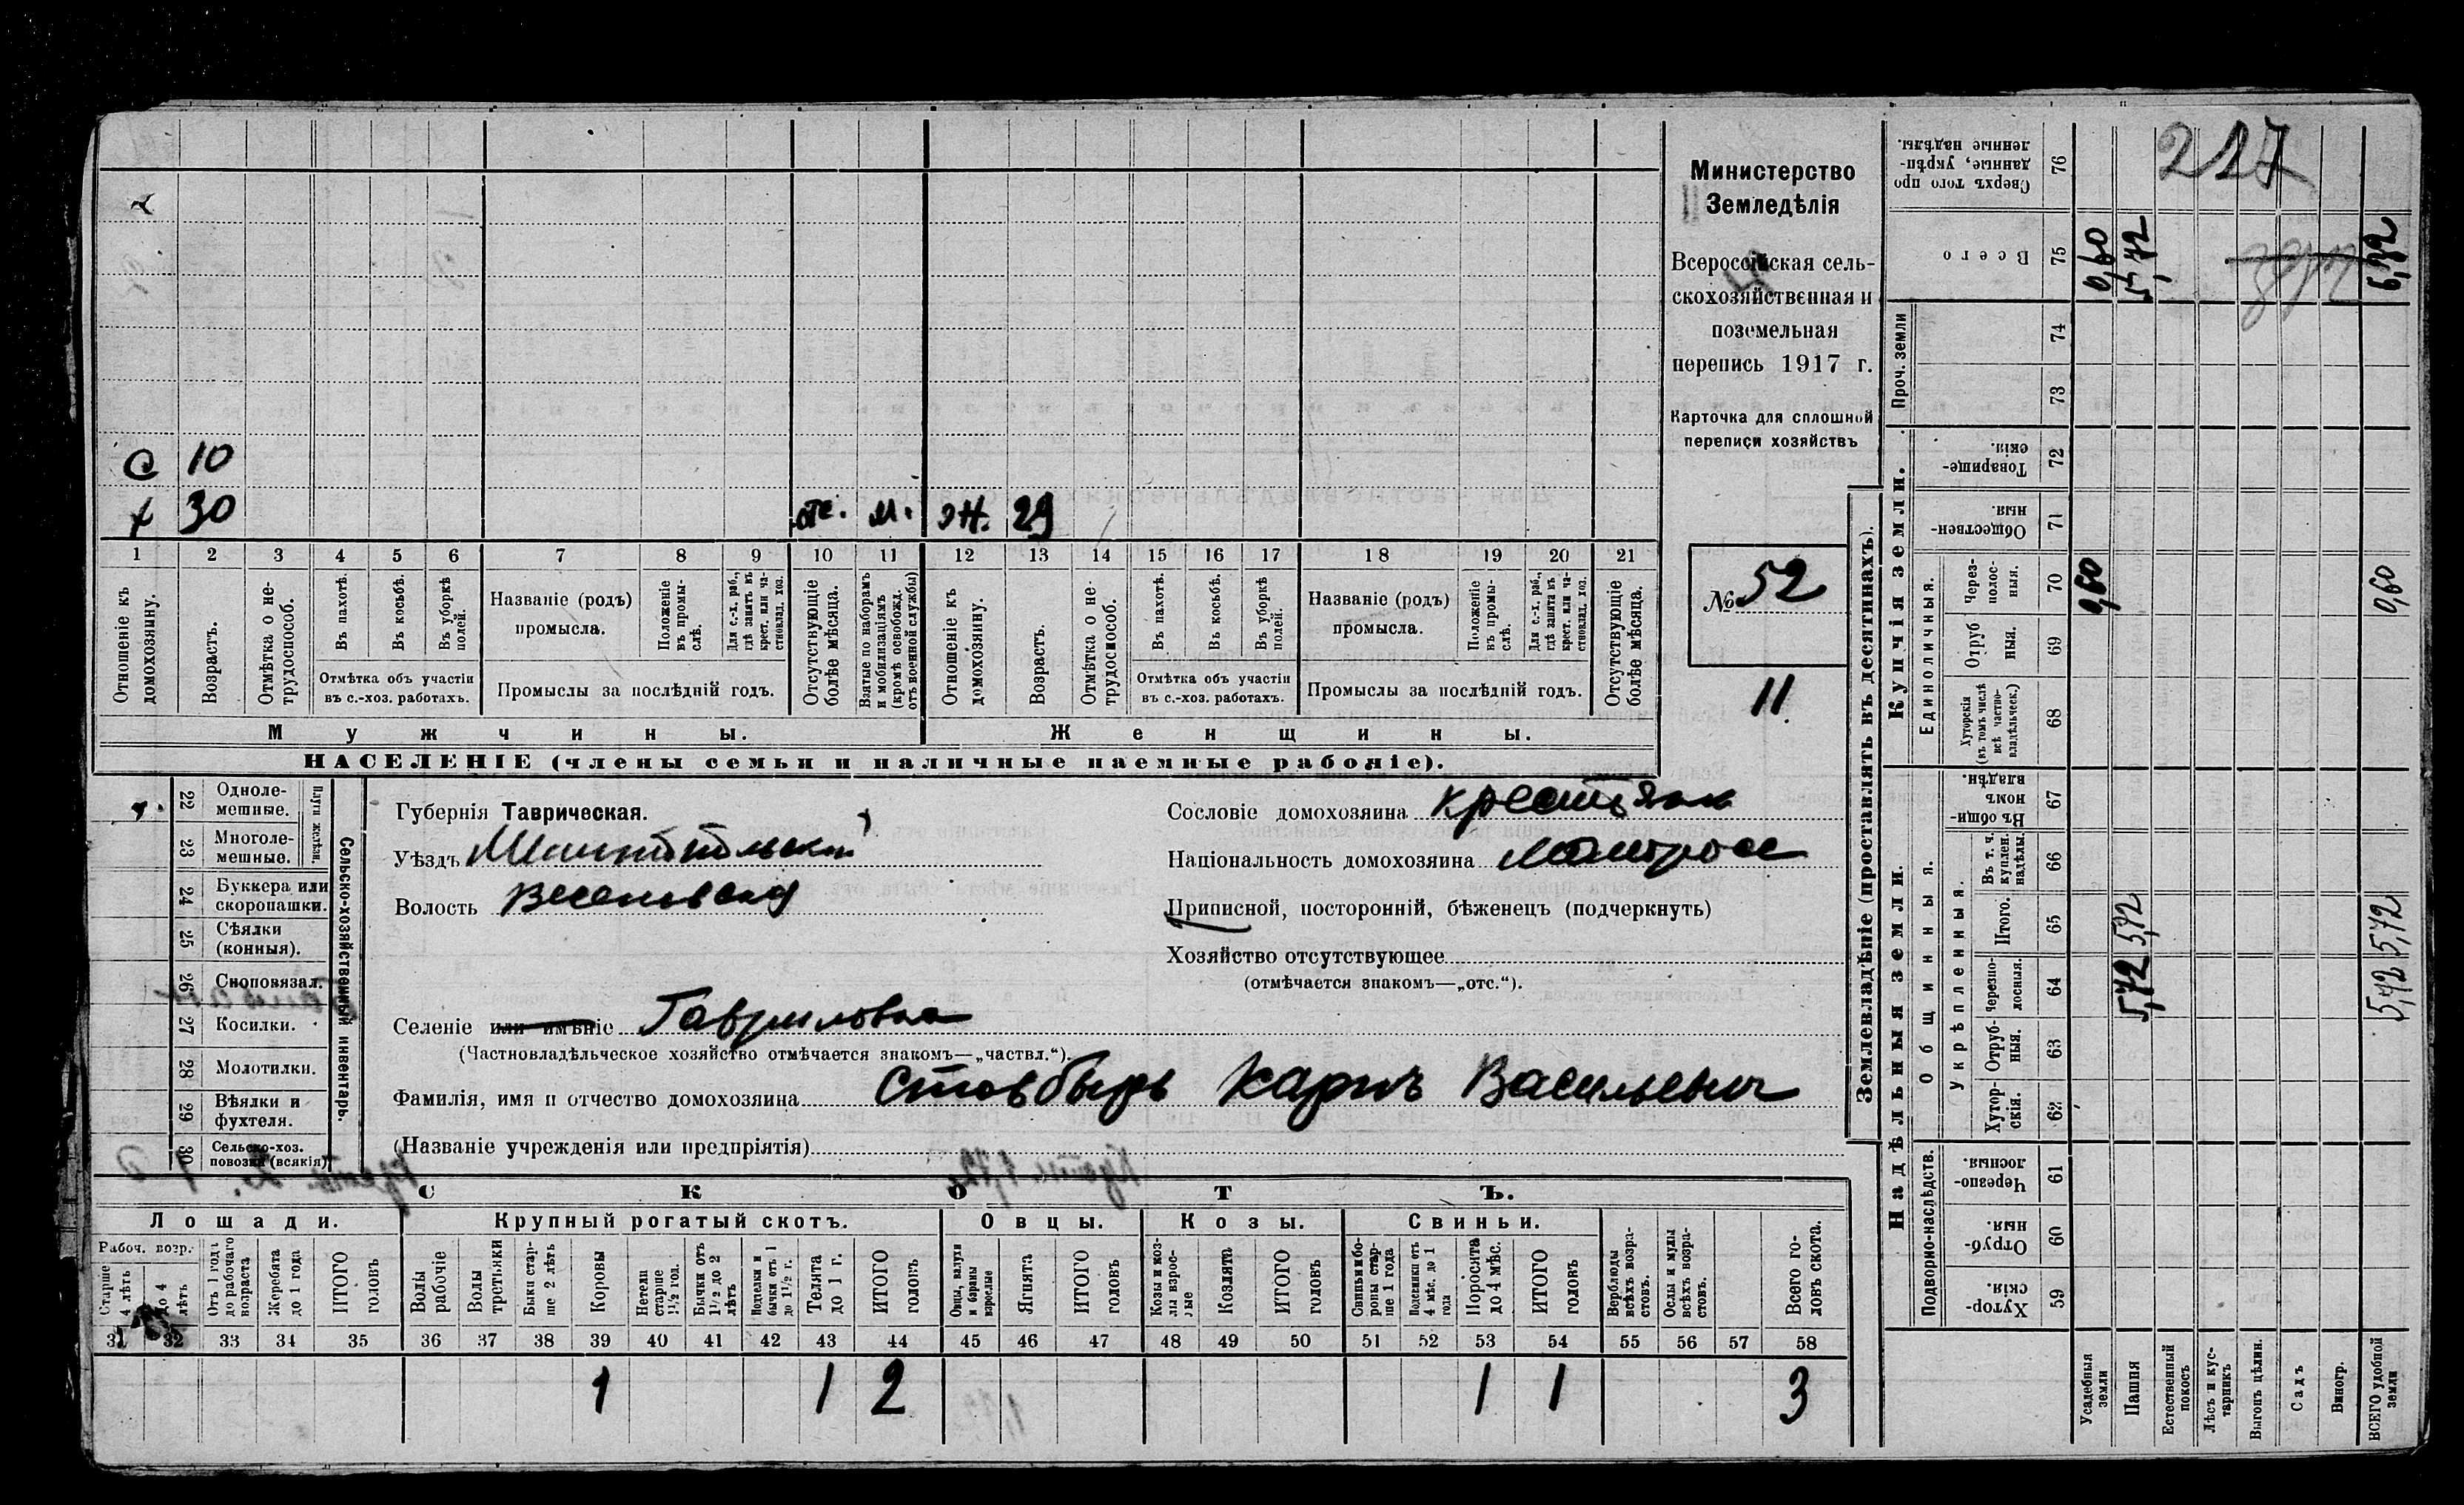 Министерство
Земледѣлія
Всероссійская сель-
скохозяйственная и
поземельная
перепись 1917 г.
Карточка для сплошной
переписи хозяйствъ
№ 52
11
217
с 10
х 30 отс. м. ж. 29
1 2 3 4 5 6 7 8 9 10 11 12 13 14 15 16 17 18 19 20 21
Отношеніе къ домохозяину.
Возрастъ.
Отмѣтка о не-трудоспособ.
Въ пахотѣ.
Въ косьбѣ.
Въ уборкѣ полей.
Отмѣтка объ участіи въ с.-хоз. работахъ.
Названіе (родъ) промысла.
Положеніе въ промы-слѣ.
Для с.-х. раб., гдѣ занятъ въ крест. или ча-стновлад. хоз.
Промыслы за послѣдній годъ.
Отсутствующіе болѣе мѣсяца.
Взятые по наборамъ и мобилизаціямъ (кромѣ освобожд. отъ военной службы)
Отношеніе къ домохозяину.
Возрастъ.
Отмѣтка о не-трудоспособ.
Въ пахотѣ.
Въ косьбѣ.
Въ уборкѣ полей.
Отмѣтка объ участіи въ с.-хоз. работахъ.
Названіе (родъ) промысла.
Положеніе въ промы-слѣ.
Для с.-х. раб., гдѣ занята въ крест. или ча-стновлад. хоз.
Промыслы за послѣдній годъ.
Отсутствующіе болѣе мѣсяца.
Мужчины. Женщины.
НАСЕЛЕНІЕ (члены семьи и наличные наемные рабочіе).
Сельско-хозяйственный инвентарь.
Плуги желѣзн.
22 Однолемешные.
23 Многолемешные.
24 Буккера или скоропашки.
25 Сѣялки (конныя).
26 Сноповязал.
27 Косилки.
28 Молотилки.
29 Вѣялки и фухтеля.
30 Сельско-хоз. повозки (всякія)
Губернія Таврическая.
Уѣздъ Мелитопольскій
Волость Веселовская
Селеніе или имѣніе Гавриловка
(Частновладѣльческое хозяйство отмѣчается знакомъ—„частвл.“).
Сословіе домохозяина крестьянин
Національность домохозяина малоросс
Приписной, посторонній, бѣженецъ (подчеркнуть)
Хозяйство отсутствующее
(отмѣчается знакомъ—„отс.“).
Фамилія, имя и отчество домохозяина Стовбырь Карпъ Васильевич
(Названіе учрежденія или предпріятія)
СКОТЪ.
Лошади. Крупный рогатый скотъ. Овцы. Козы. Свиньи.
Рабоч. возр.
Старше 4 лѣтъ
до 4 лѣтъ
Отъ 1 года до рабочаго возраста
Жеребята до 1 года
ИТОГО головъ
Волы рабочіе
Волы третьяки
Быки стар-ше 2 лѣтъ
Коровы
Нетели старше 1½ год.
Бычки отъ 1½ до 2 лѣтъ
Подтелки и бычки отъ 1 до 1½ г.
Телята до 1 г.
ИТОГО головъ
Овцы, валухи и бараны взрослые
Ягнята
ИТОГО головъ
Козы и коз-лы взрос-лые
Козлята
ИТОГО головъ
Свиньи и бо-ровы стар-ше 1 года
Подсвинки отъ 4 мѣс. до 1 года
Поросята до 4 мѣс.
ИТОГО головъ
Верблюды всѣхъ возра-стовъ.
Ослы и мулы всѣхъ возра-стовъ.
Всего го-ловъ скота.
31 32 33 34 35 36 37 38 39 40 41 42 43 44 45 46 47 48 49 50 51 52 53 54 55 56 57 58
1 1 2 1 1 3
Землевладѣніе (проставлять въ десятинахъ).
Надѣльныя земли. Купчія земли. Проч. земли
Подворно-наслѣдств.
Общинныя.
Укрѣпленныя.
Единоличныя.
59 Хутор-скія.
60 Отруб-ныя.
61 Черезпо-лосныя.
62 Хутор-скія.
63 Отруб-ныя.
64 Черезпо-лосныя. 5,72 5,72
65 Итого. 5,72 5,72
66 Въ т. ч. куплен. надѣлы.
67 Въ общи-номъ владѣн.
68 Хуторскія (въ томъ числѣ всѣ частно-владѣльческ.)
69 Отруб ныя.
70 Через-полос-ныя. 0,60 0,60
71 Обществен-ныя
72 Товарище-скія.
73
74
75 Всего 0,60 5,72
76 Сверхъ того про данные, укрѣп-ленные надѣлы.
Усадебныя земли
Пашня
Естественный покосъ
Лѣсъ и кус-тарникъ
Выгонъ цѣлин.
Садъ
Виногр.
ВСЕГО удобной земли